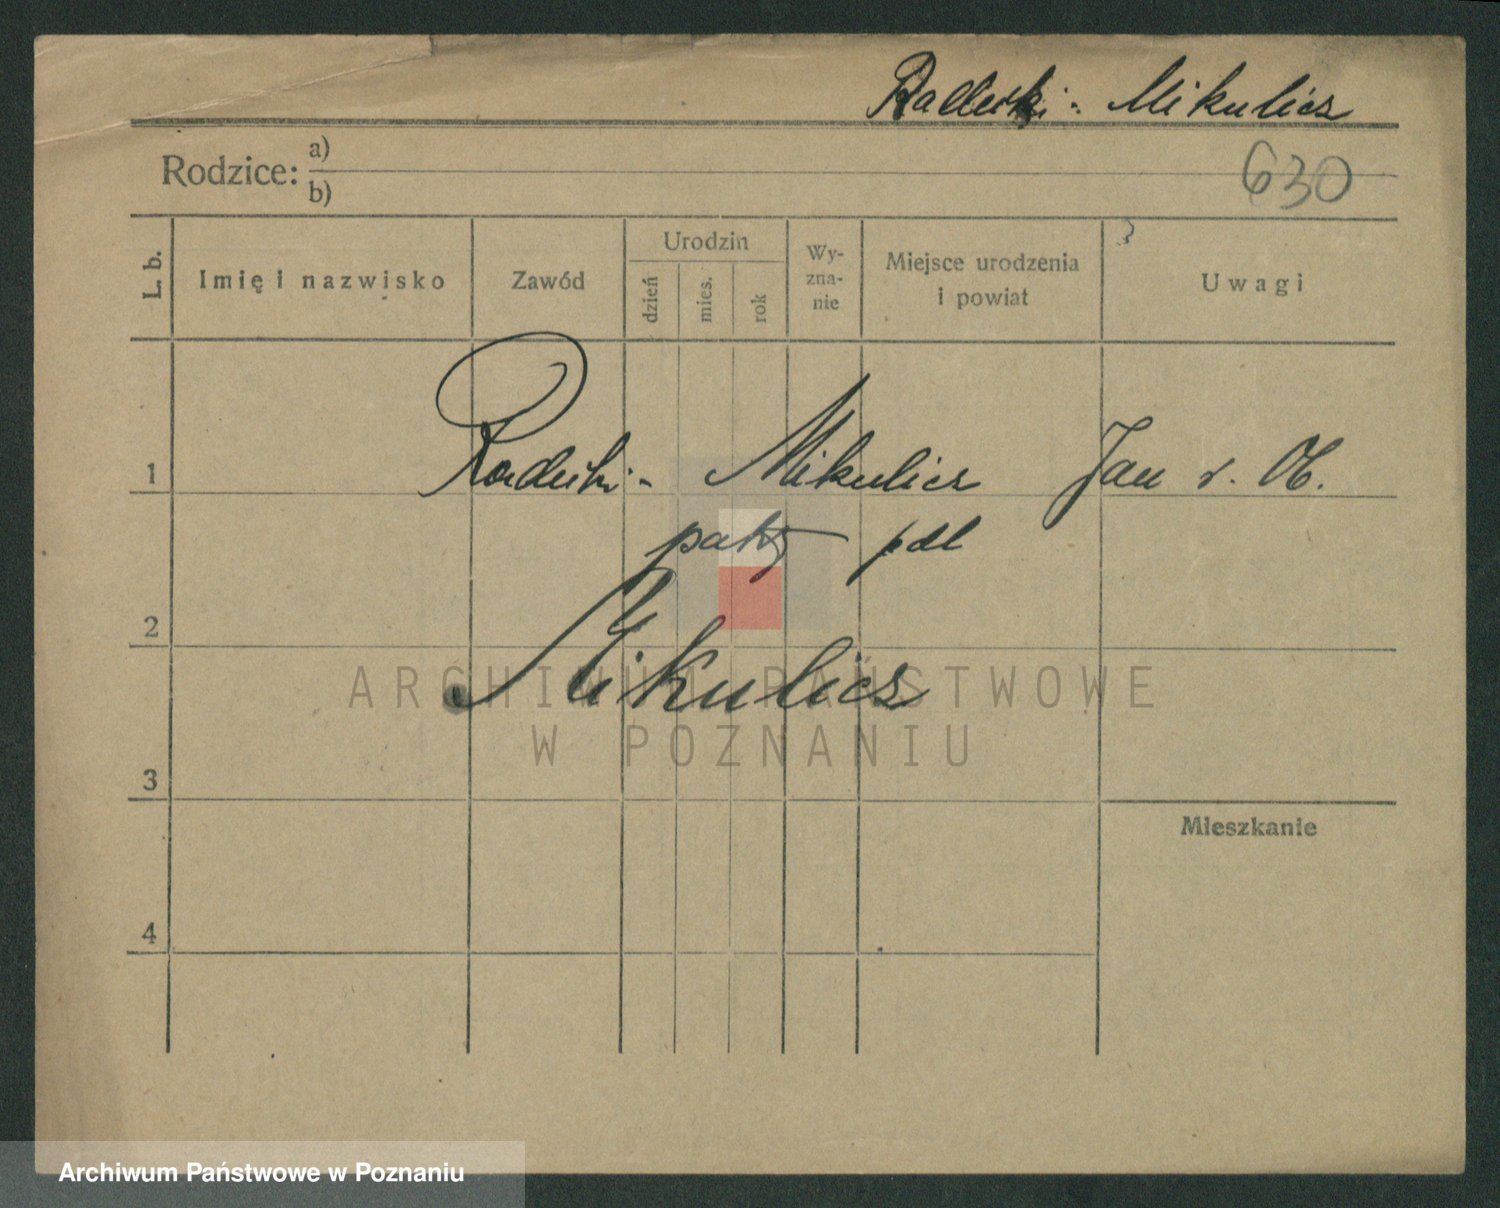 Radecki - Mikulicz
Rodzice: a)
b)
630
L. b.
Imię i nazwisko
Zawód
Urodzin
dzień
mies.
rok
Wy-
zna-
nie
Miejsce urodzenia
i powiat
Uwagi
1
Radecki - Mikulicz Jan v. Ob.
patrz pdl
2
Mikulicz
ARCHIWUM PAŃSTWOWE
W POZNANIU
3
Mieszkanie
4
Archiwum Państwowe w Poznaniu